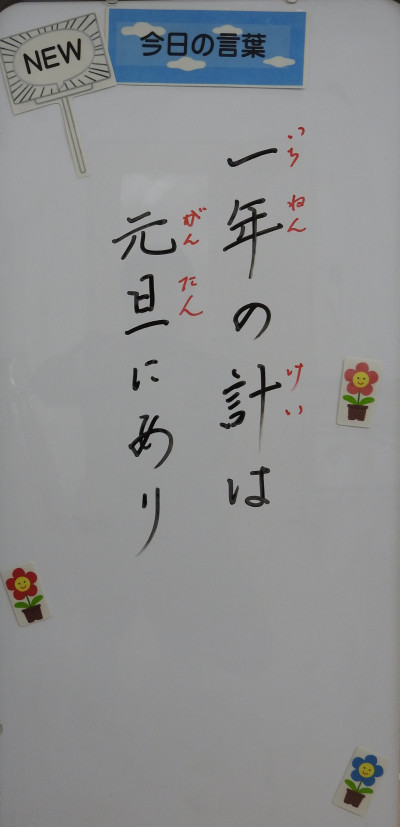 NEW
今日の言葉
いち ねん けい
一年の計は
がん たん
元旦にあり